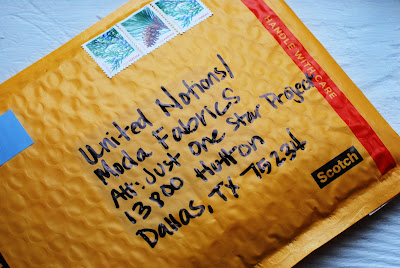 HANDLE WITH CARE
United Notions/
Moda Fabrics
Att: Just One Star Project
13800 Hutton
Dallas, TX 75234
Scotch